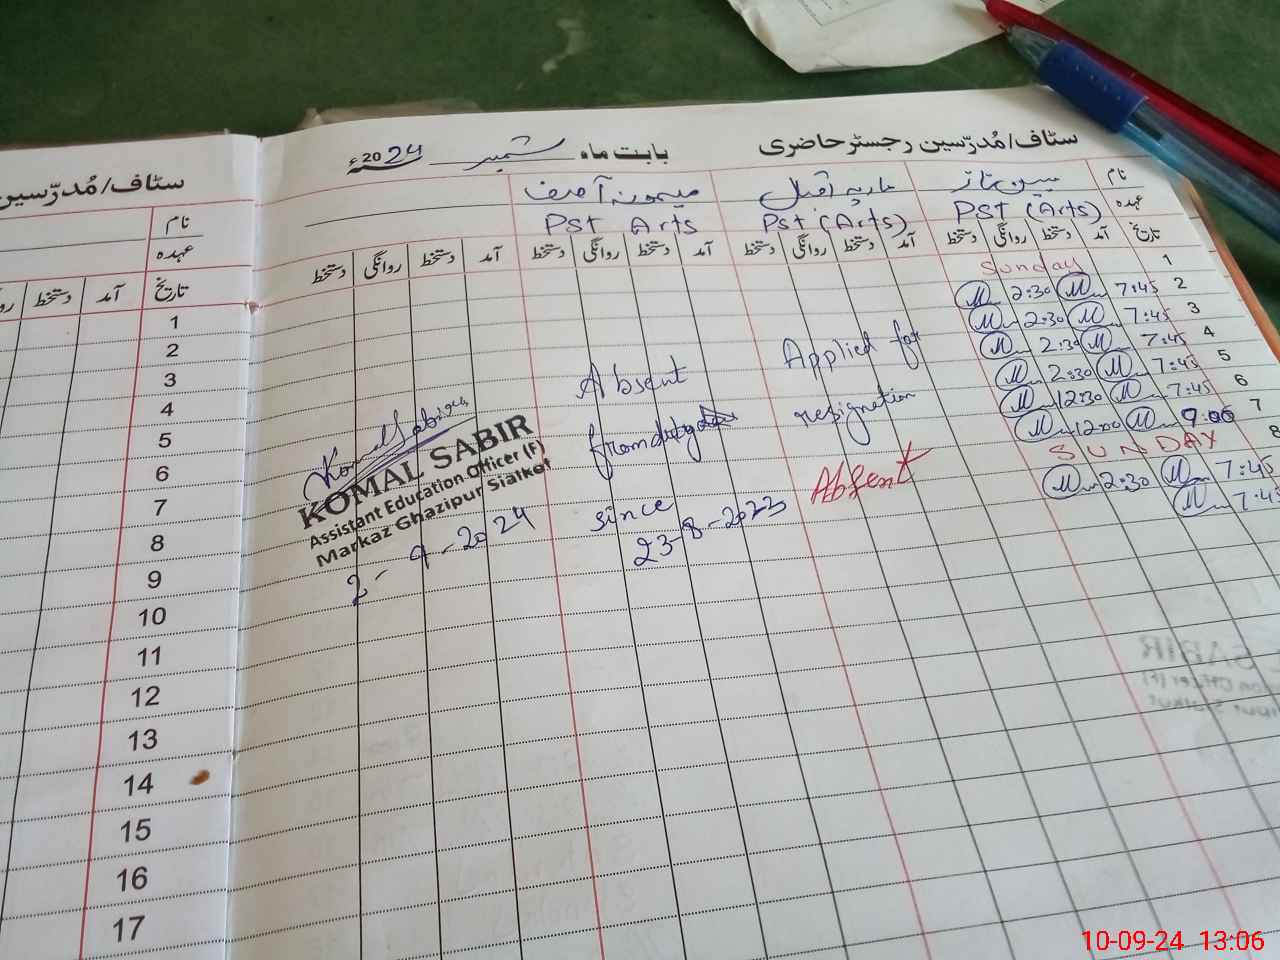 سٹاف/مُدرّسین رجسٹر حاضری
بابت ماہ ستمبر 2024ء
نام
ماریہ اقبال
میمونہ آصف
عہدہ
PST (Arts)
PST (Arts)
PST Arts
تاریخ
آمد دستخط روانگی دستخط
آمد دستخط روانگی دستخط
آمد دستخط روانگی دستخط
آمد دستخط روانگی دستخط
1 Sunday
2 7:45 2:30
3 7:45 2:30
4 7:45 2:30
5 7:45 2:30
6 7:45 12:30
7 9:00 12:00
8 SUNDAY
7:45 2:30
7:45
Applied for
resignation
Absent
Absent
from
since
23-8-2023
KOMAL SABIR
Assistant Education Officer (F)
Markaz Ghazipur Sialkot
2-9-2024
سٹاف/مُدرّسین
نام
عہدہ
تاریخ
آمد
دستخط
1
2
3
4
5
6
7
8
9
10
11
12
13
14
15
16
17
10-09-24 13:06